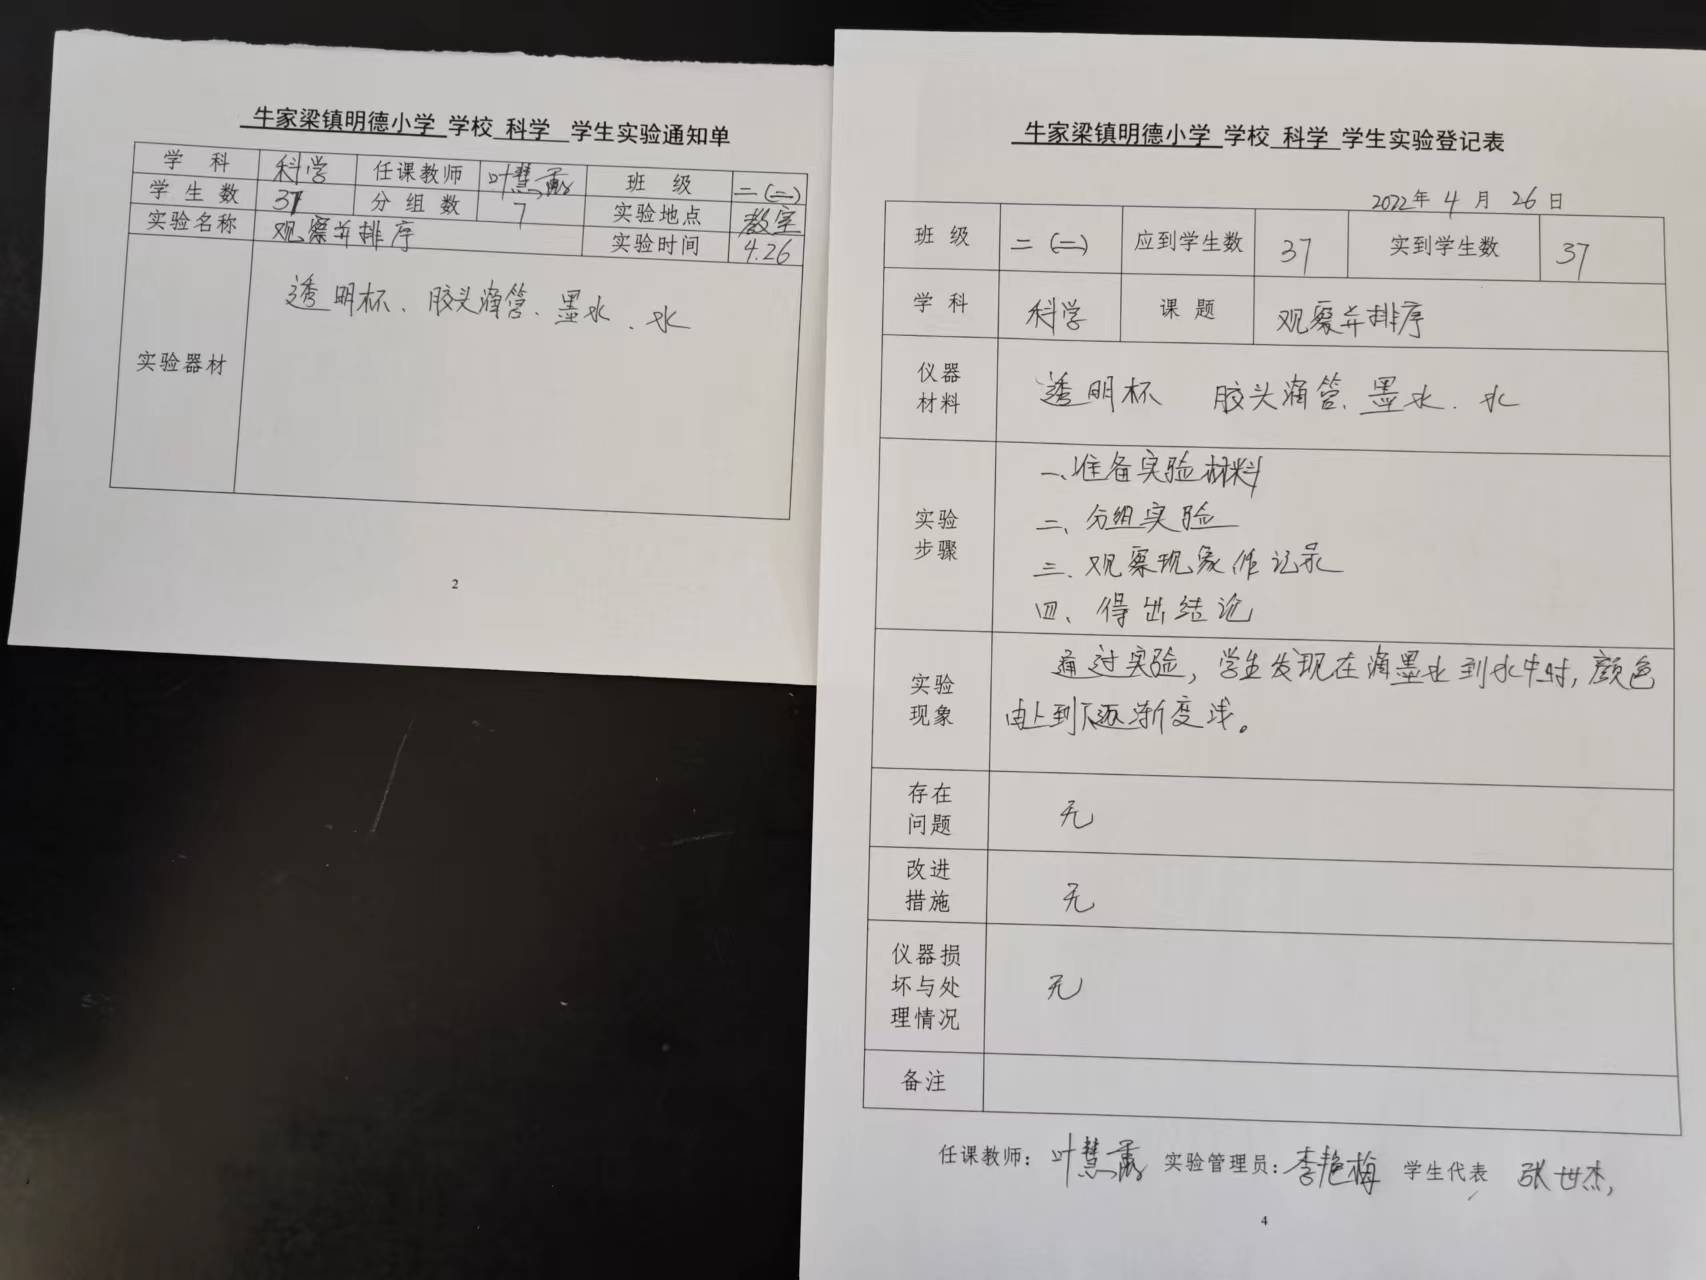 牛家梁镇明德小学 学校 科学 学生实验通知单
学 科 科学 任课教师 叶慧 班 级 二(二)
学 生 数 37 分 组 数 7 实验地点 教室
实验名称 观察并排序 实验时间 4.26
实验器材 透明杯、胶头滴管、墨水、水
2
牛家梁镇明德小学 学校 科学 学生实验登记表
2022年 4 月 26 日
班 级 二(二) 应到学生数 37 实到学生数 37
学 科 科学 课 题 观察并排序
仪器
材料
透明杯 胶头滴管、墨水、水
实验
步骤
一、准备实验材料
二、分组实验
三、观察现象作记录
四、得出结论
实验
现象
通过实验,学生发现在滴墨水到水中时,颜色
由上到下逐渐变浅。
存在
问题
无
改进
措施
无
仪器损
坏与处
理情况
无
备注
任课教师: 叶慧 实验管理员: 李艳梅 学生代表 张世杰,
4